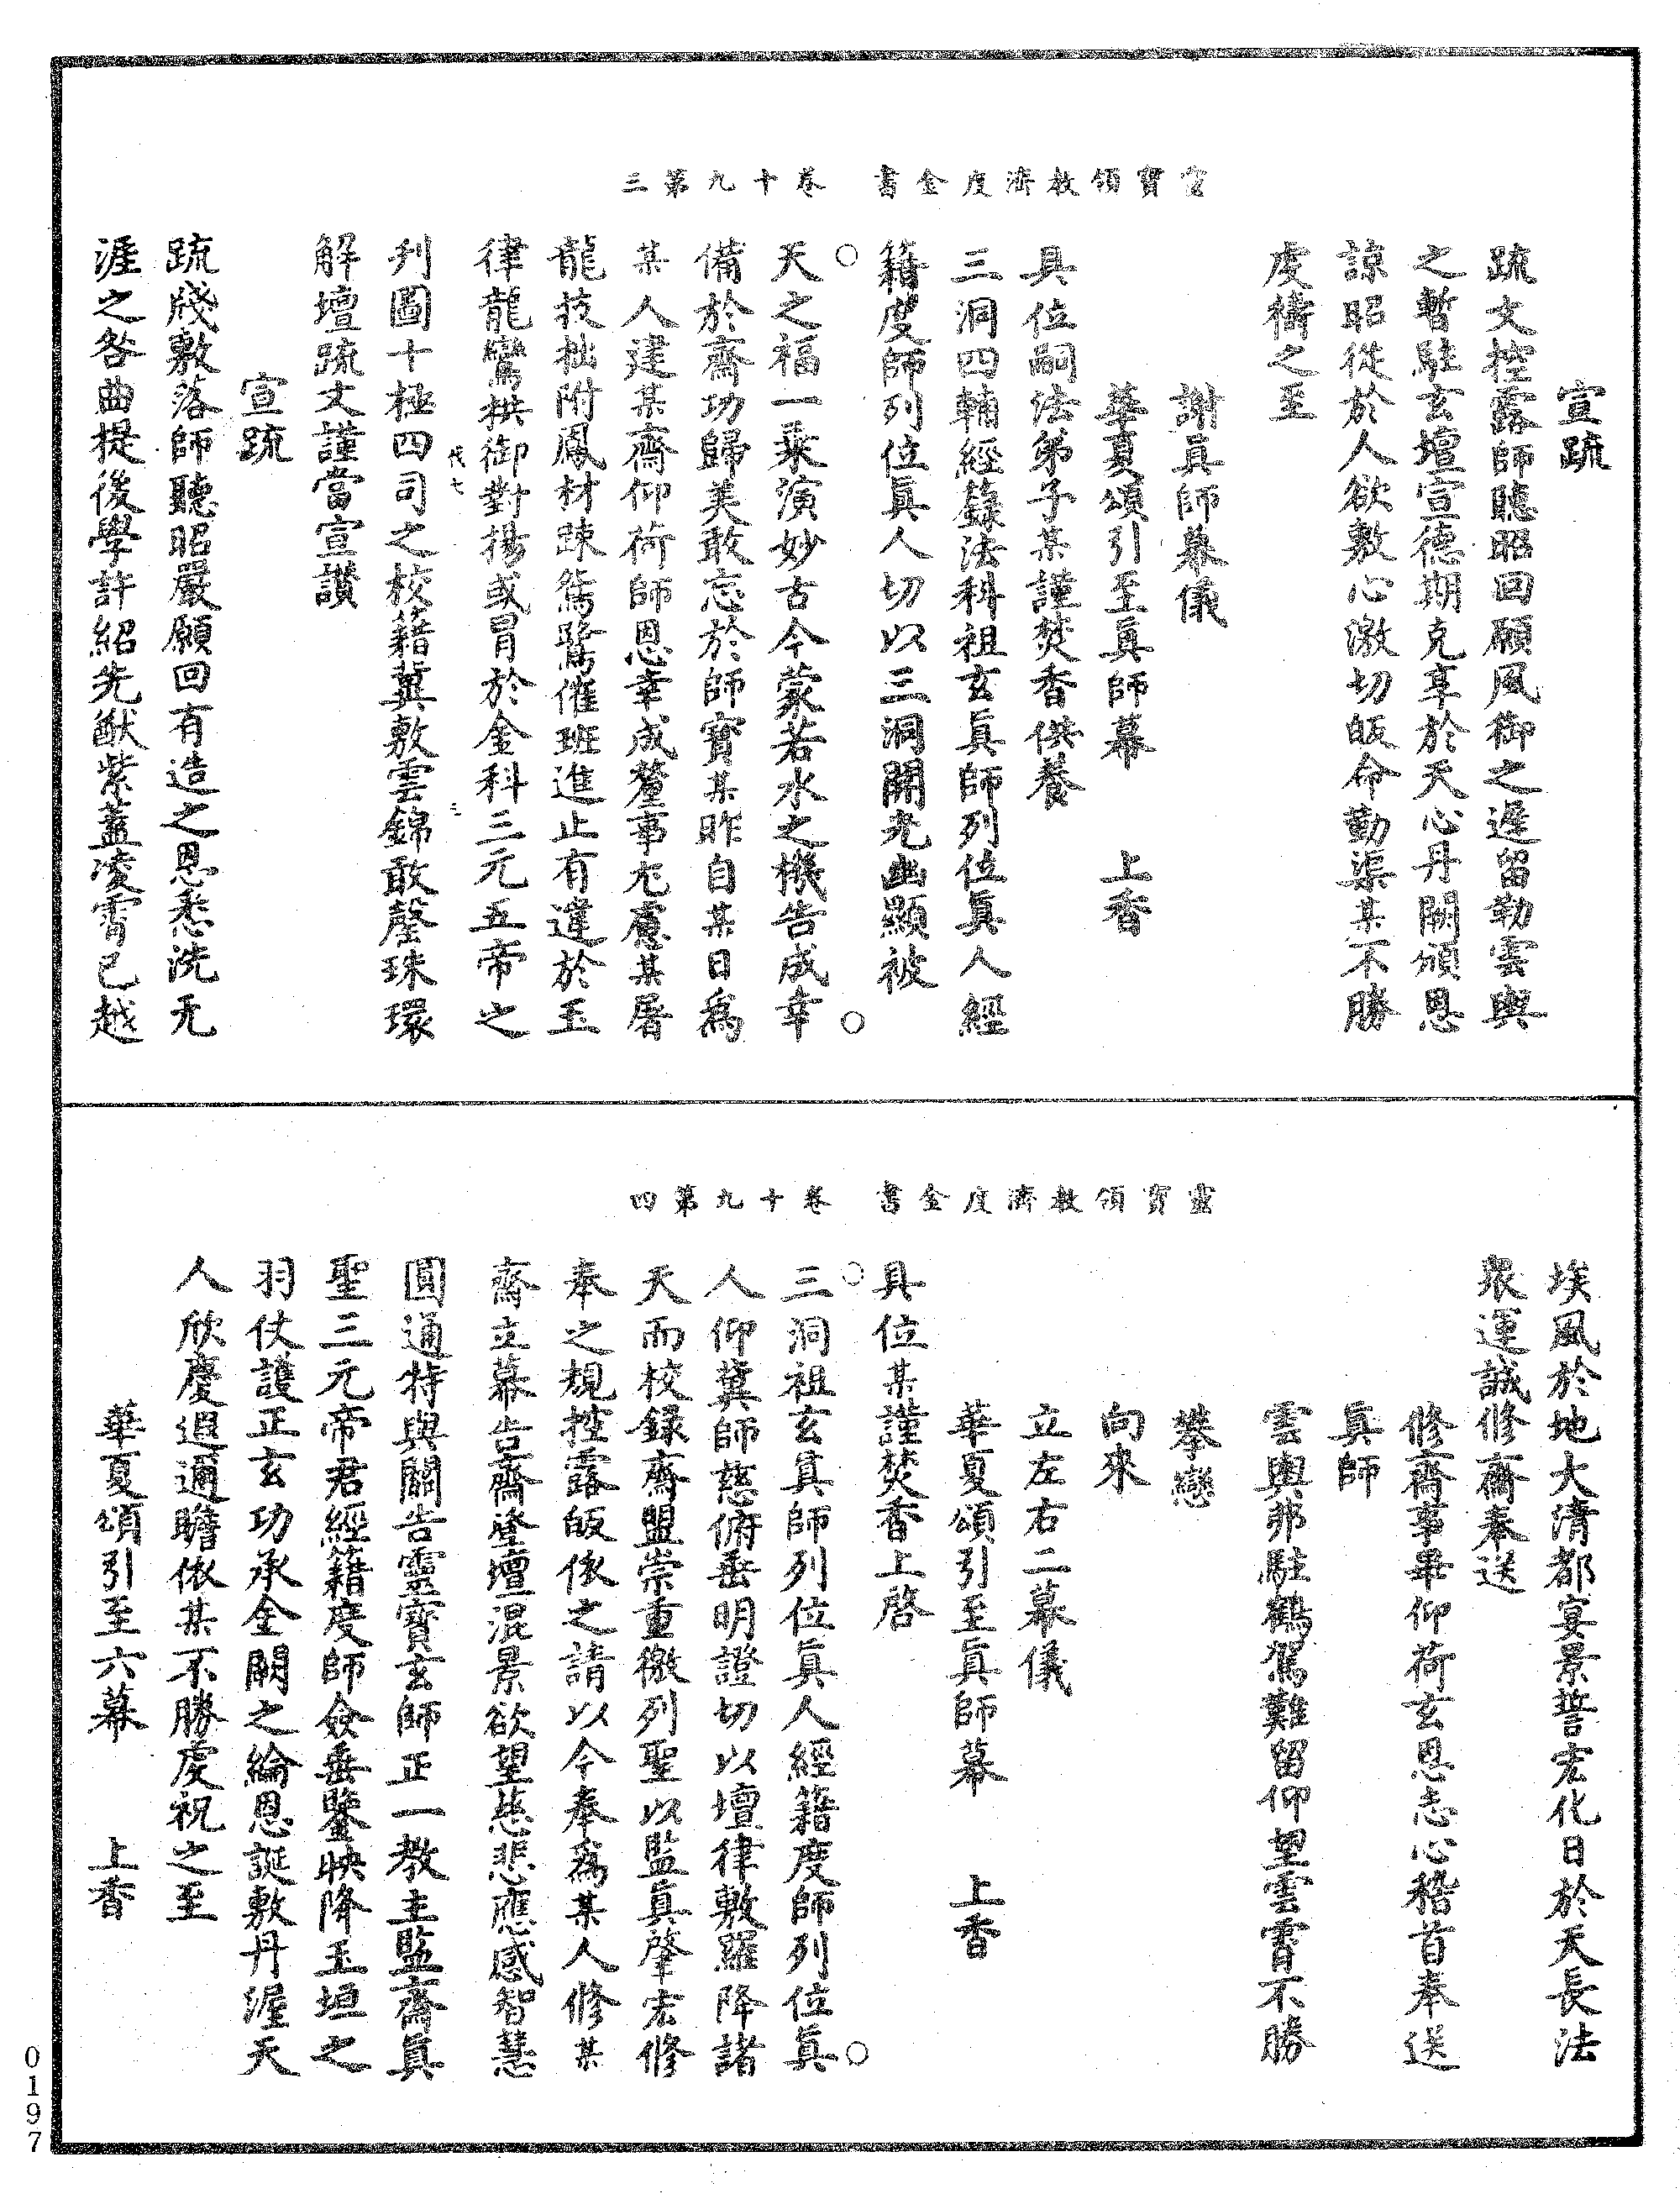 靈寶領教濟度金書　卷十九第三
宣䟽
䟽文控露師聽昭回願風御之遲留勒雲輿
之暫駐玄壇宣德期克享於天心丹闕頒恩
諒昭從於人欲敷心激切皈命勤渠某不勝
虔禱之至
謝真師幕儀
華夏頌引至真師幕　上香
具位嗣法弟子某謹焚香供養
三洞四輔經籙法科祖玄真師列位真人經
籍度師列位真人切以三洞開光幽顯被
○　○
天之福一乘演妙古今蒙若水之機告成幸
備於齋功歸美敢忘於師寶某昨自某日為
某人建某齋仰荷師恩幸成釐事尤慮某屠
龍技拙附鳳材踈鴛鷺催班進止有違於玉
律龍鸞拱御對揚或冒於金科三元五帝之
伐七　三
列圖十極四司之校籍冀敷雲錦敢罄珠環
解壇䟽文謹當宣讚
宣䟽
䟽牋敷落師聽昭嚴願回有造之恩悉洗无
涯之咎曲提後學許紹先猷紫蓋凌霄已越
靈寶領教濟度金書　卷十九第四
埃風於地大清都宴景誓宏化日於天長法
眾運誠修齋奉送
修齋事畢仰荷玄恩志心稽首奉送
真師
雲輿弗駐鶴駕難留仰望雲霄不勝
攀戀
向來
立左右二幕儀
華夏頌引至真師幕　上香
具位某謹焚香上啓
○　○
三洞祖玄真師列位真人經籍度師列位真
人仰冀師慈俯垂明證切以壇律敷羅降諸
天而校録齋盟崇重徼列聖以監真肇宏修
奉之規控露皈依之請以今奉為某人修某
齋立幕告齋登壇混景欲望慈悲應感智慧
圓通特與關告靈寶玄師正一教主監齋真
聖三元帝君經籍度師僉垂鑒映降玉垣之
羽仗護正玄功承金闕之綸恩誕敷丹渥天
人欣慶遐邇瞻依某不勝虔祝之至
華夏頌引至六幕　上香
0197